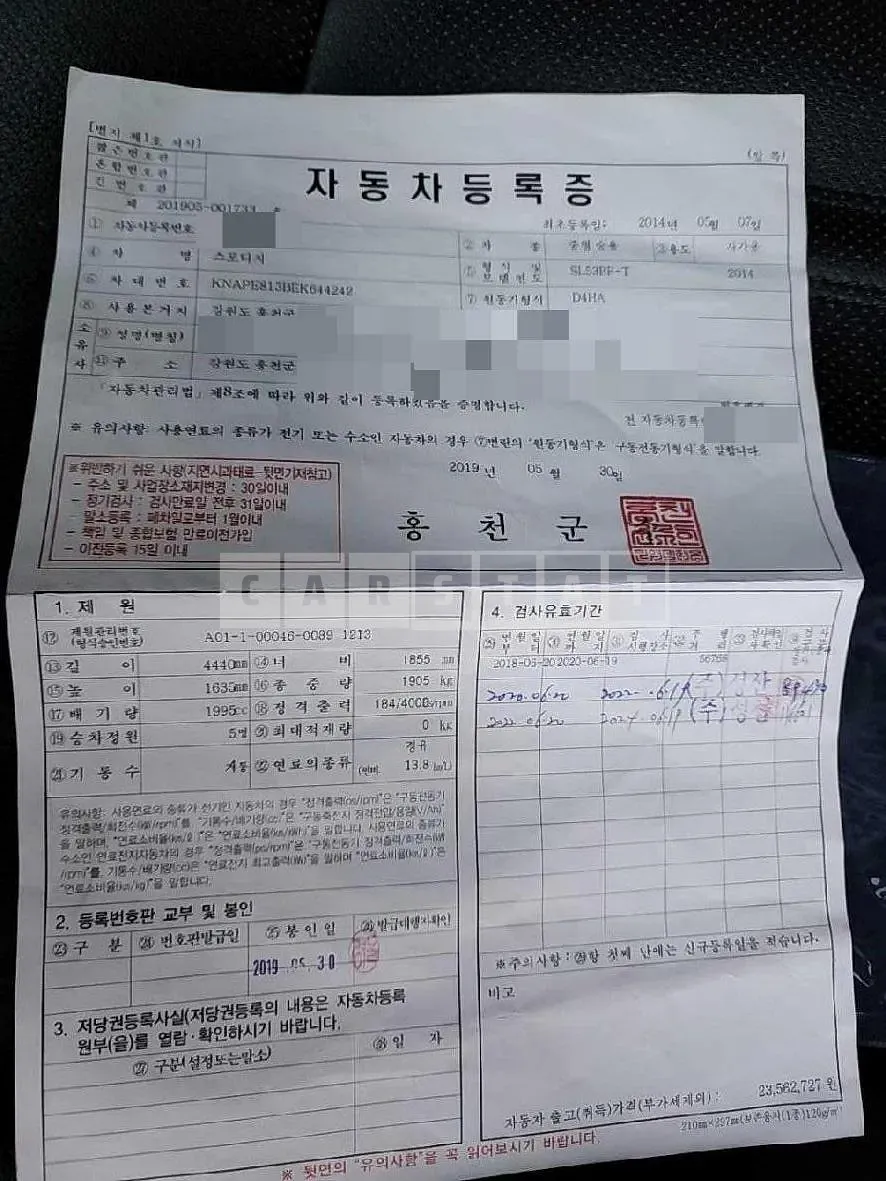 [별지 제1호 서식]
(앞 쪽)
짧은번호판
혼합번호판
긴 번호판
자동차등록증
제 201905-001733 호
최초등록일: 2014년 05월 07일
① 자동차등록번호 ② 차 종 중형승용 ③용도 자가용
④ 차 명 스포티지 ⑤ 형식 및 모델연도 SL53BF-T 2014
⑥ 차대번호 KNAPE813BEK644242 ⑦ 원동기형식 D4HA
⑧ 사용본거지 강원도 홍천군
소유자 ⑨ 성명(명칭)
주 소 강원도 홍천군
「자동차관리법」 제8조에 따라 위와 같이 등록하였음을 증명합니다.
전 자동차등록
※ 유의사항: 사용연료의 종류가 전기 또는 수소인 자동차의 경우 ⑦번란의 '원동기형식'은 '구동전동기형식'을 말합니다.
2019 년 05 월 30일
※위반하기 쉬운 사항(지연시과태료-뒷면기재참고)
- 주소 및 사업장소재지변경 : 30일이내
- 정기검사 : 검사만료일 전후 31일이내
- 말소등록 : 폐차일로부터 1월이내
- 책임 및 종합보험 만료이전가입
- 이전등록 15일 이내
홍 천 군
CARSTAT
1. 제 원
⑫ 제원관리번호 (형식승인번호) A01-1-00046-0039 1213
⑬ 길 이 4440mm ⑭ 너 비 1855 mm
⑮ 높 이 1635mm ⑯ 총 중 량 1905 kg
⑰ 배 기 량 1995cc ⑱ 정격출력 184/4000
⑲ 승차정원 5명 ⑳ 최대적재량 0 kg
㉑ 기 통 수 4기통 ㉒ 연료의종류 경유
(연비) 13.8
유의사항: 사용연료의 종류가 전기인 자동차의 경우 "정격출력(ps/rpm)"은 "구동전동기
정격출력/회전수(kW/rpm)"를, "기통수/배기량(cc)"은 "구동축전지 정격전압/용량(V/Ah)"
을 말하며, "연료소비율(km/ℓ)"은 "연료소비율(km/kWh)"을 말합니다. 사용연료의 종류가
수소인 연료전지자동차의 경우 "정격출력(ps/rpm)"은 "구동전동기 정격출력/회전수(kW
/rpm)"를, 기통수/배기량(cc)은 "연료전지 최고출력(kW)"을 말하며 "연료소비율(km/ℓ)"은
"연료소비율(km/kg)"을 말합니다.
2. 등록번호판 교부 및 봉인
㉓ 구 분 ㉔ 번호판발급일 ㉕ 봉 인 일 ㉖ 발급대행자확인
2019. 05. 30
3. 저당권등록사실(저당권등록의 내용은 자동차등록
원부(을)를 열람·확인하시기 바랍니다.
㉗ 구분(설정또는말소) ㉘ 일 자
4. 검사유효기간
연월일 부터 연월일 까지 검사 시행장소 주행 거리
2018-06-20 2020-06-19 56768
2020.06.20 2022.6.19
2022.06.20 2024.06.19
※주의사항 : ㉙항 첫째 난에는 신규등록일을 적습니다.
비고
자동차 출고(취득)가격(부가세제외) : 23,562,727 원
210mm×297mm(보존용지(1종)120g/㎡)
※ 뒷면의 "유의사항"을 꼭 읽어보시기 바랍니다.